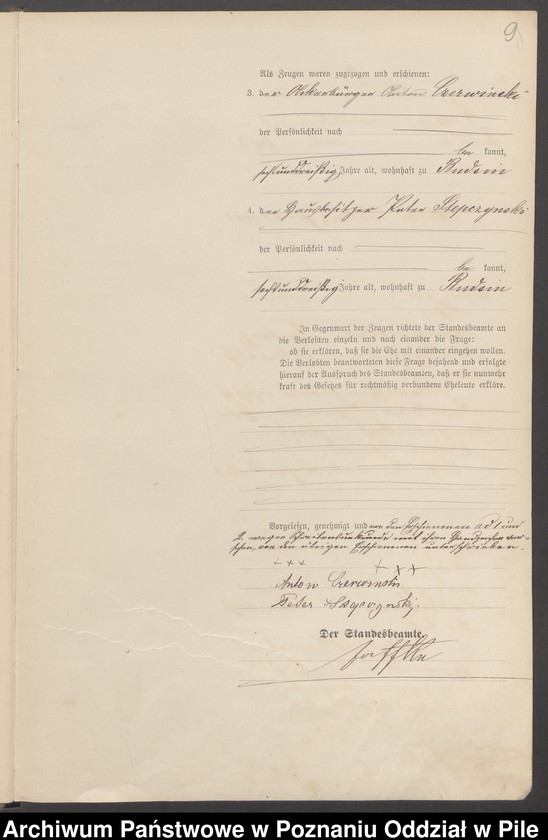 9
Als Zeugen waren zugezogen und erschienen:
3. der Ackerbürger Anton Czerwinski
der Persönlichkeit nach
be kannt,
sechsunddreißig Jahre alt, wohnhaft zu Budsin
4. der Hausbesitzer Peter Stepczynski
der Persönlichkeit nach
be kannt,
sechsunddreißig Jahre alt, wohnhaft zu Budsin
In Gegenwart der Zeugen richtete der Standesbeamte an
die Verlobten einzeln und nach einander die Frage:
ob sie erklären, daß sie die Ehe mit einander eingehen wollen.
Die Verlobten beantworteten diese Frage bejahend und erfolgte
hierauf der Ausspruch des Standesbeamten, daß er sie nunmehr
kraft des Gesetzes für rechtmäßig verbundene Eheleute erkläre.
Vorgelesen, genehmigt und von den Erschienenen ad 1 und
2 wegen Schreibensunkunde mit ihren Handzeichen ver-
sehen, von den übrigen Erschienenen unterschrieben.
+++ +++
Anton Czerwinski
Peter
Der Standesbeamte
Archiwum Państwowe w Poznaniu Oddział w Pile